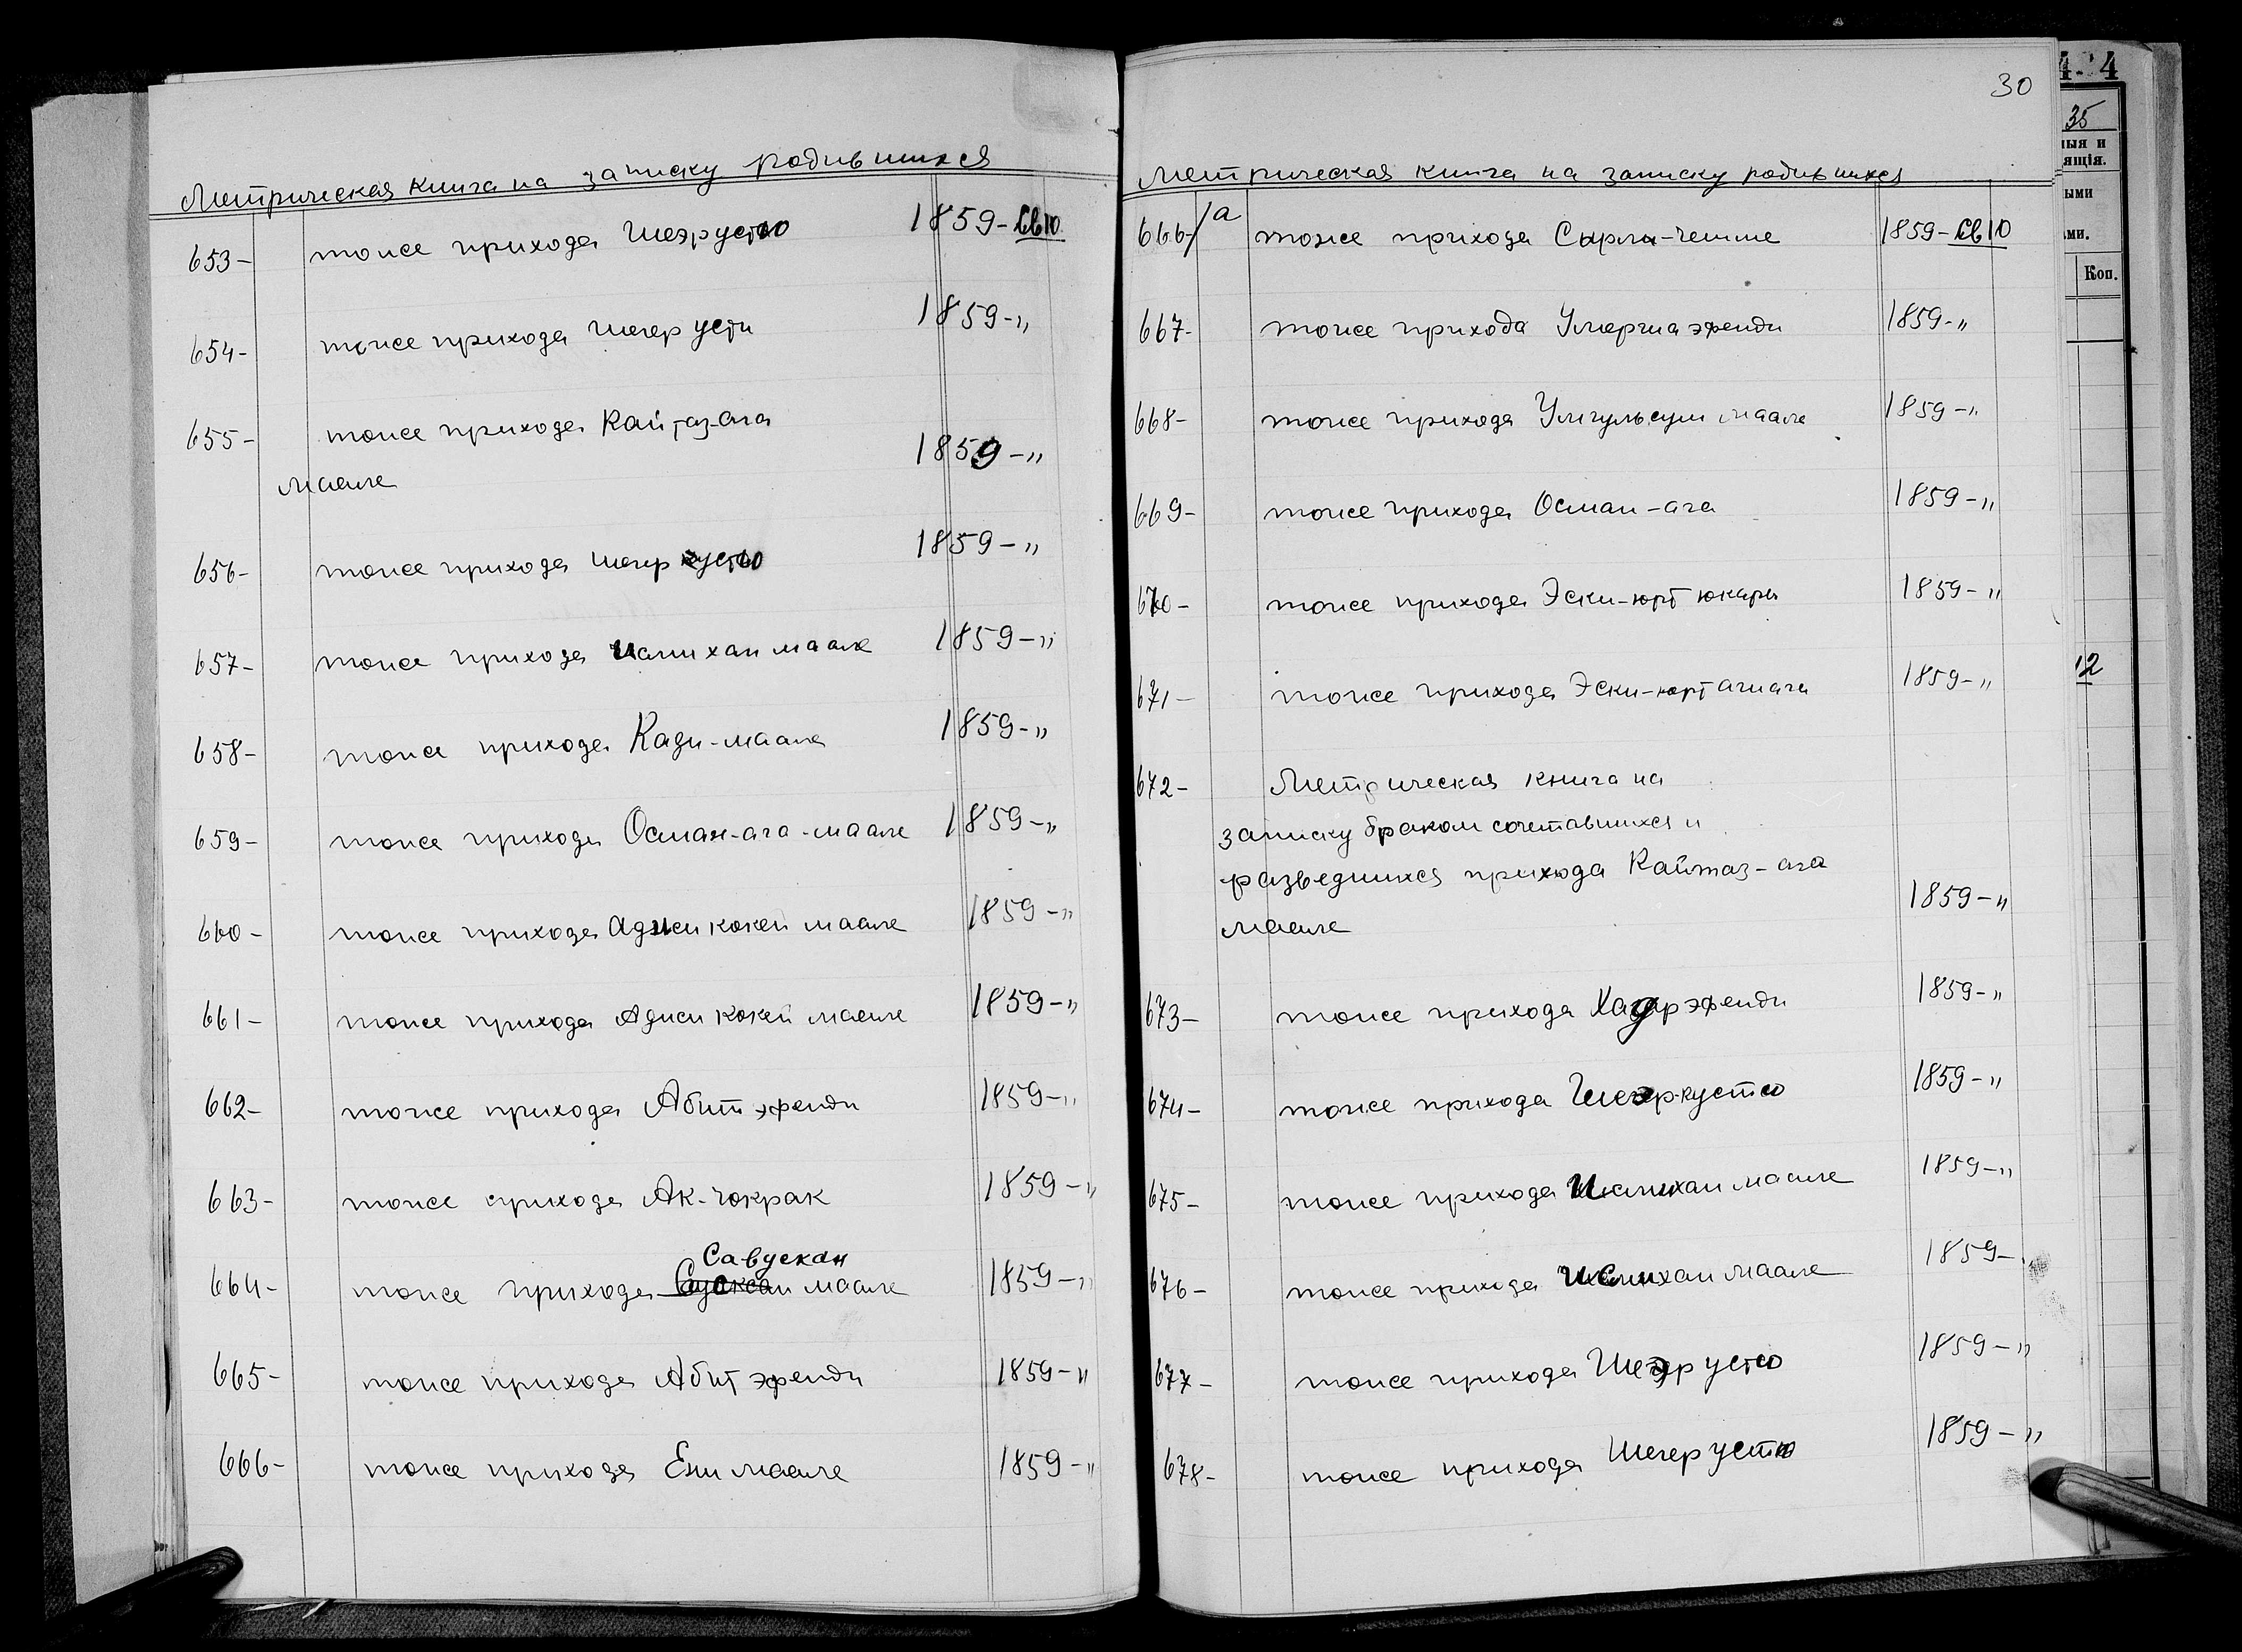 Метрическая книга на записку родившихся
653- тоже прихода Шеэрустю 1859-св10
654- тоже прихода Шегер усти 1859-"
655- тоже прихода Кайтаз-ага
маале 1859-"
656- тоже прихода Шегер кустю 1859-"
657- тоже прихода Исмихан маале 1859-"
658- тоже прихода Кади-маале 1859-"
659- тоже прихода Осман-ага-маале 1859-"
660- тоже прихода Аджи кокей маале 1859-"
661- тоже прихода Аджи кокей маале 1859-"
662- тоже прихода Абит эфенди 1859-"
663- тоже прихода Ак-чокрак 1859-"
Савускан
664- тоже прихода маале 1859-"
665- тоже прихода Абит эфенди 1859-"
666- тоже прихода Ени маале 1859-"
30
Метрическая книга на записку родившихся
666/а тоже прихода Сырлы-чешме 1859-св10
667- тоже прихода эфенди 1859-"
668- тоже прихода Умгульсум маале 1859-"
669- тоже прихода Осман-ага 1859-"
670- тоже прихода Эски-юрт юкары 1859-"
671- тоже прихода Эски-юрт ашага 1859-"
672- Метрическая книга на
записку браком сочетавшихся и
разведшихся прихода Кайтаз-ага
маале 1859-"
673- тоже прихода Хадыр эфенди 1859-"
674- тоже прихода Шегер-кустю 1859-"
675- тоже прихода Исмихан маале 1859-"
676- тоже прихода Исмихан маале 1859-
677- тоже прихода Шеэр устю 1859-"
678- тоже прихода Шегер устю 1859-"
4.'4
35
ныя и
ящія.
ыми
ми.
Коп.
12